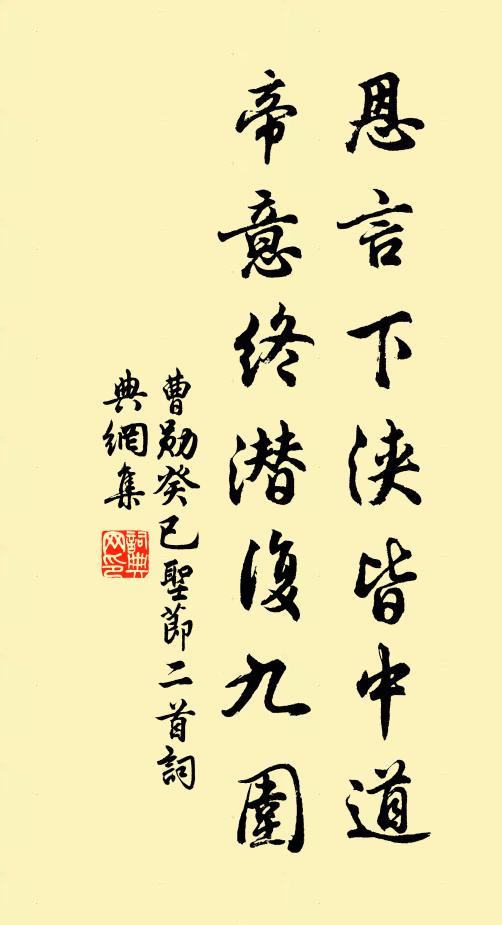 恩言下浹皆中道
帝意終潛復九圍
曹勛癸巳聖節二首詞
典網集
詞典網印